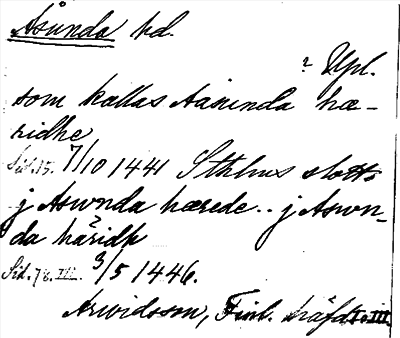 Åsunda hd.
? Upl.
som kallas Aasunda hæ-
ridhe
Sid. 15. 7/10 1441 Sthlms slott
j Aswnda hærede.. j Aswn-
da häridh
Sid. 78. III. 3/5 1446.
Arwidsson, Finl. häfd. III.